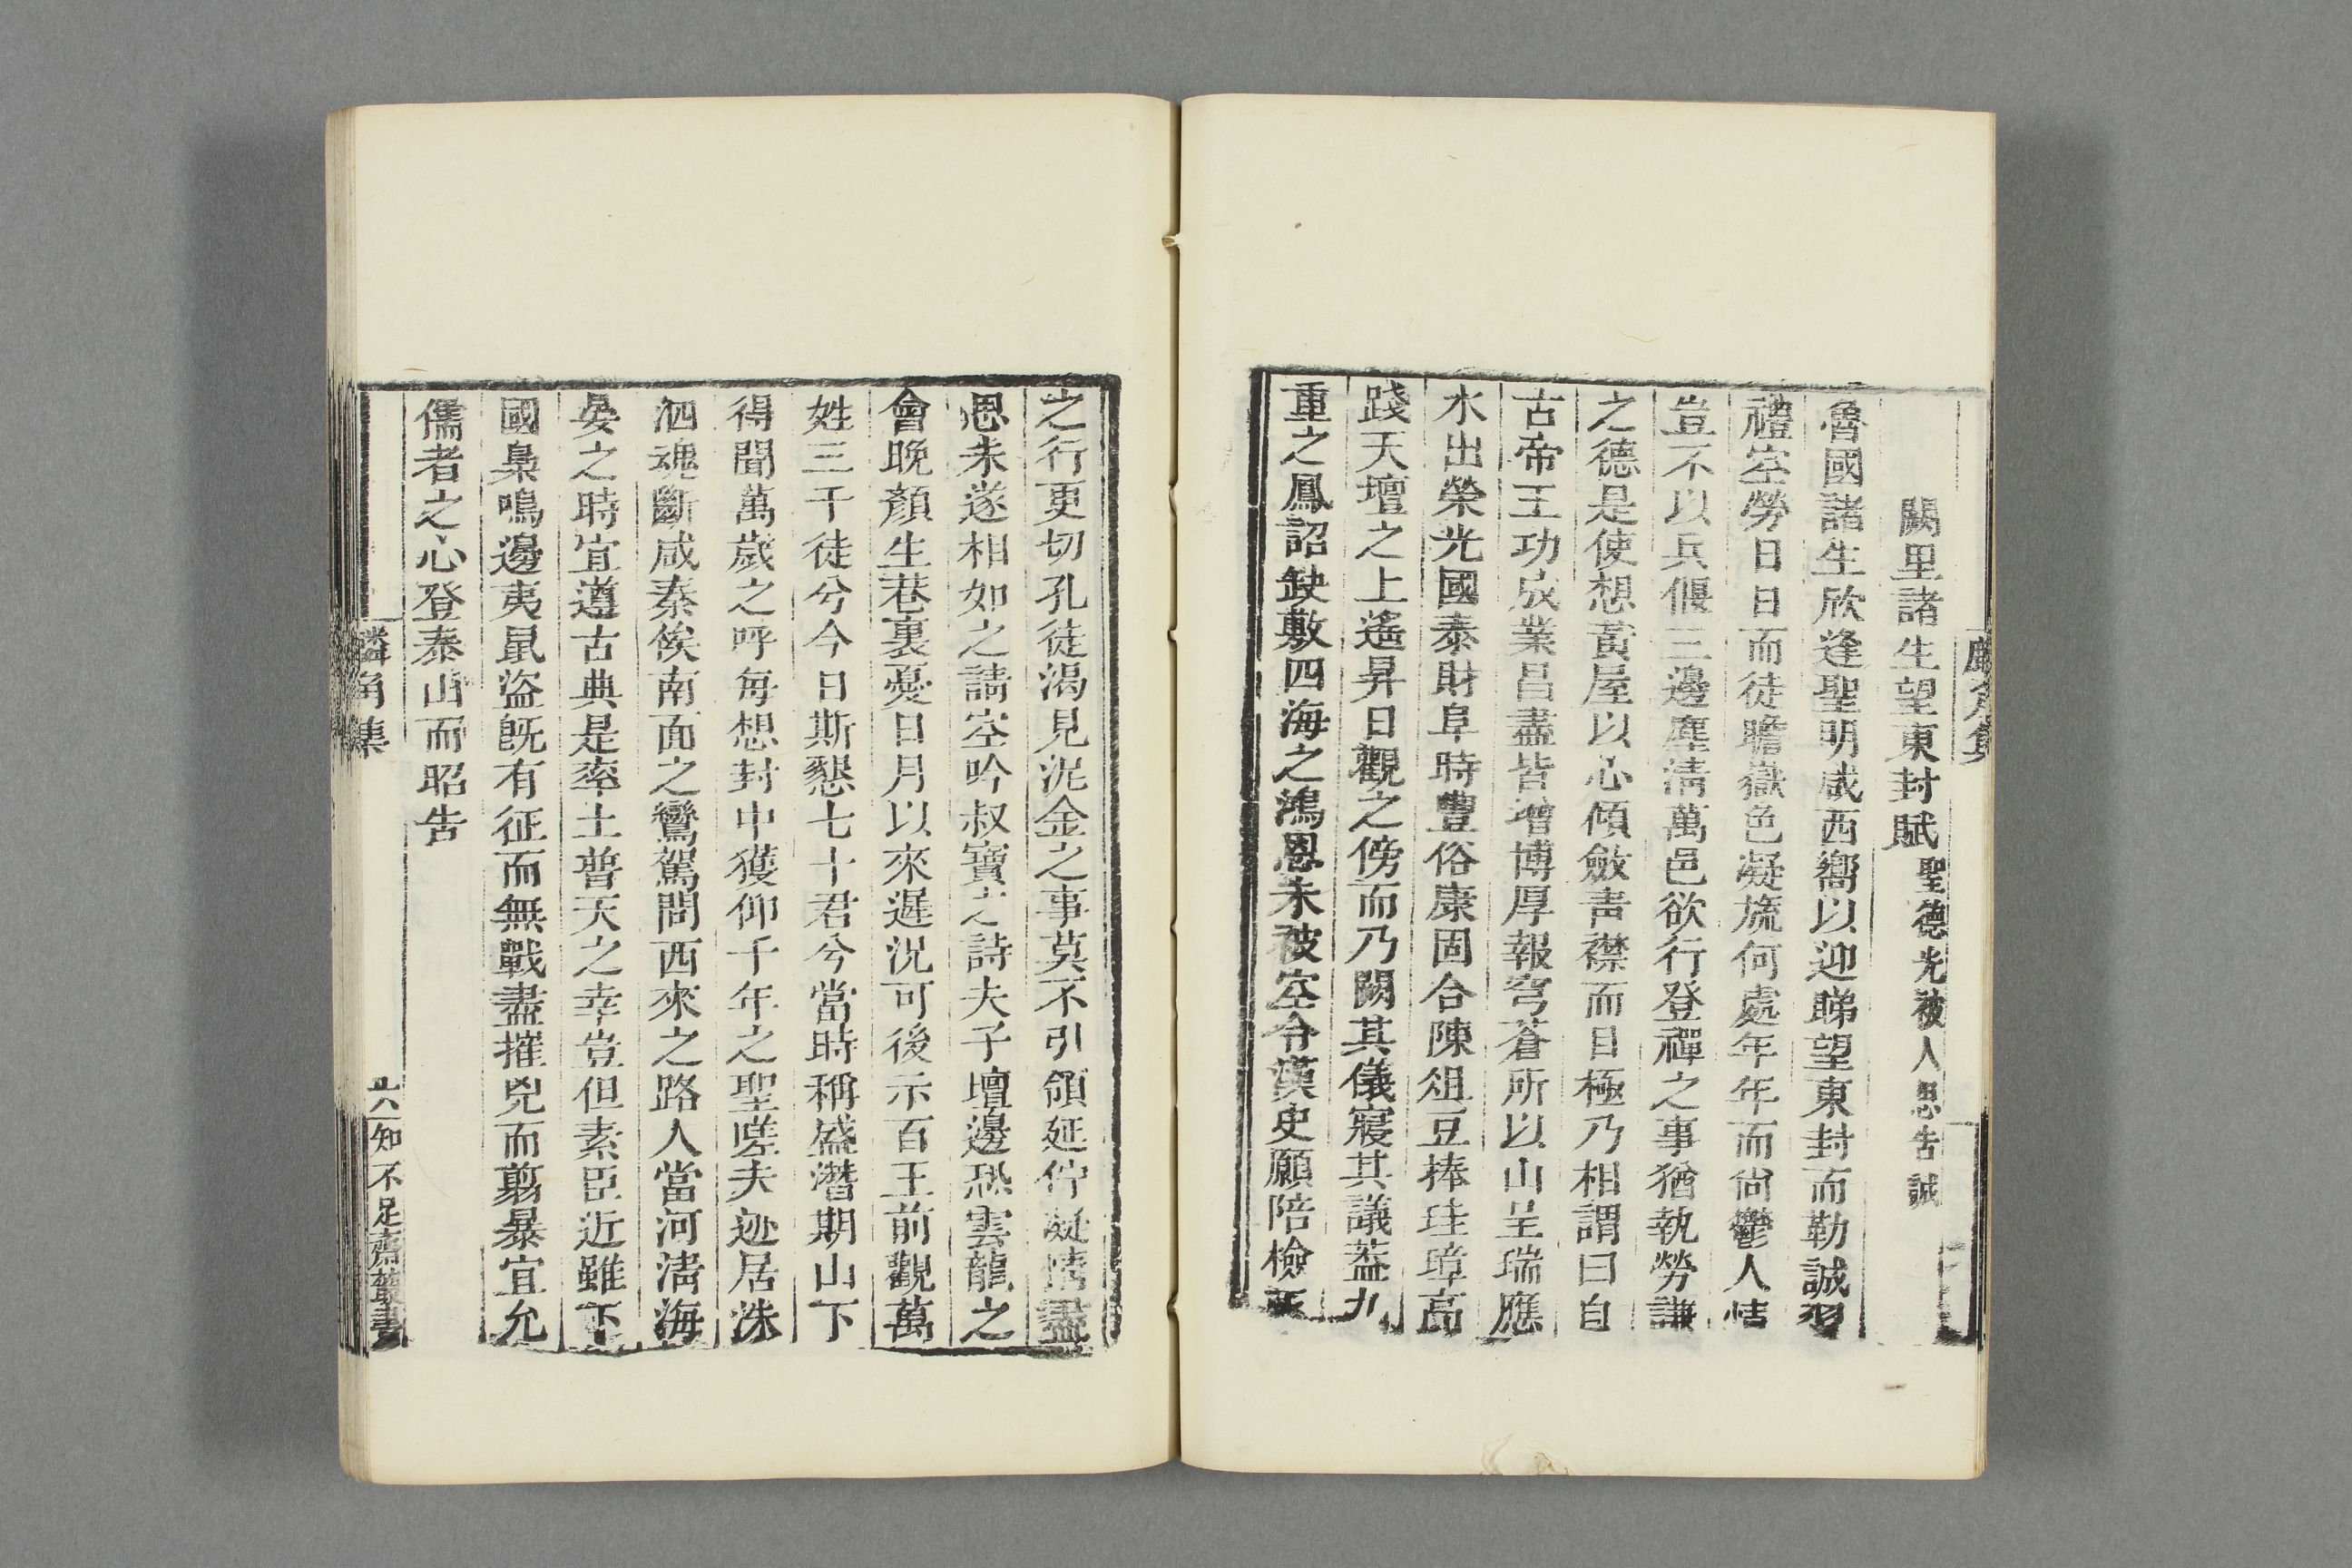 麟角集
闕里諸生望東封賦聖德光被人思告誠
魯國諸生欣逢聖明咸西嚮以迎睇望東封而勒誠習
禮空勞日日而徒瞻嶽色凝旒何處年年而尚鬱人情
豈不以兵偃三邊塵淸萬邑欲行登禪之事猶執勞謙
之德是使想黃屋以心傾斂靑襟而目極乃相謂曰自
古帝王功成業昌盡皆增博厚報穹蒼所以山呈瑞應
水出榮光國泰財阜時豐俗康固合陳俎豆捧珪璋高
踐天壇之上遙昇日觀之傍而乃闕其儀寢其議葢九
重之鳳詔缺敷四海之鴻恩未被空令漢史願陪檢玉
之行更切孔徒渴見泥金之事莫不引領延佇凝情盡
思未遂相如之請空吟叔寶之詩夫子壇邊恐雲龍之
會晚顏生巷裏憂日月以來遲況可後示百王前觀萬
姓三千徒兮今日斯懇七十君兮當時稱盛潛期山下
得聞萬歲之呼每想封中獲仰千年之聖嗟夫迹居洙
泗魂斷咸秦俟南面之鸞駕問西來之路人當河淸海
晏之時宜遵古典是率土普天之幸豈但素臣近雖下
國梟鳴邊夷鼠盜旣有征而無戰盡摧兇而翦暴宜允
儒者之心登泰山而昭告
麟角集
知不足齋叢書